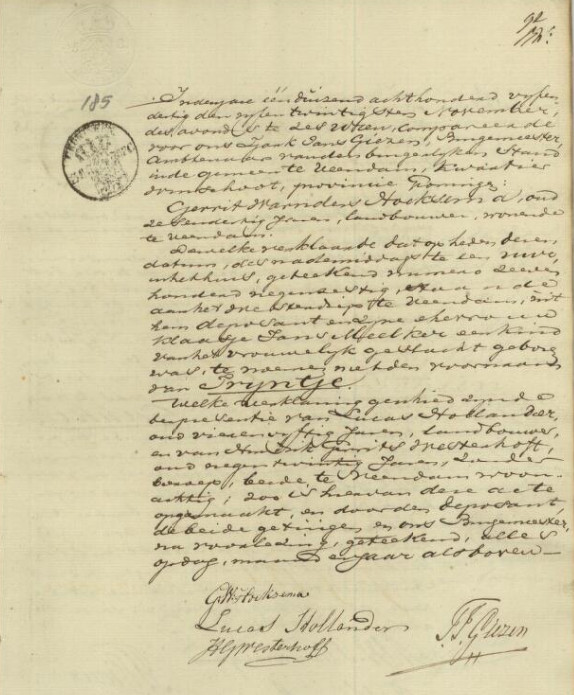 185
In den jare één duizend acht honderd vyfen
dertig den vyfen twintigsten November,
des avonds te zes uren, Compareerde
voor ons Tjaak Jans Giezen, Burgemeester,
Ambtenaar van den burgerlyken Stand
in de gemeente Veendam, Kwartier
Winschoten, provincie Groningen:
Gerrit Warnders Hoeksema, oud
zes en dertig Jaren, landbouwer, wonende
te Veendam.
Dewelke verklaarde dat op heden dezen
datum, des nademiddags te een ure,
in het huis, geteekend numero zeven
honderd negen sestig, staande
aan het Westerdiep te Veendam, uit
hem deposant en zyne ehevrouw
Klaasje Jans Meelker een kind
van het vrouwelyk geslacht geboren
was, te noemen met den voornaam
van Tryntje.
Welke verklaring geschied zynde
ter presentie van Lucas Hollander,
oud vier en vyftig Jaren, landbouwer,
en van Hendrik Gerrits Westerhoff,
oud negen twintig Jaren, zonder
beroep, beide, te Veendam woon-
achtig; zoo is hiervan deze acte
opgemaakt, en door den deposant,
de beide getuigen en ons Burgemeester,
na voorlezing, geteekend, alles
op dag, maand en jaar als boven—
G W Hoeksema
Lucas Hollander
H G Westerhoff
J. J. Giezen